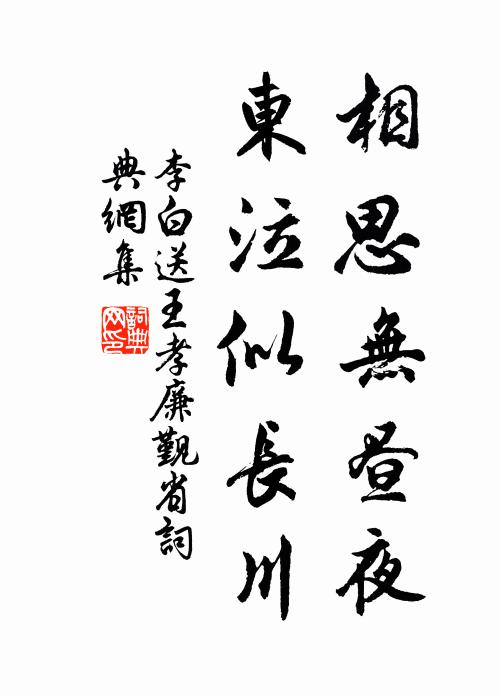 相思無晝夜
東泣似長川
李白送王孝廉覲省詞
典網集
詞典
网印